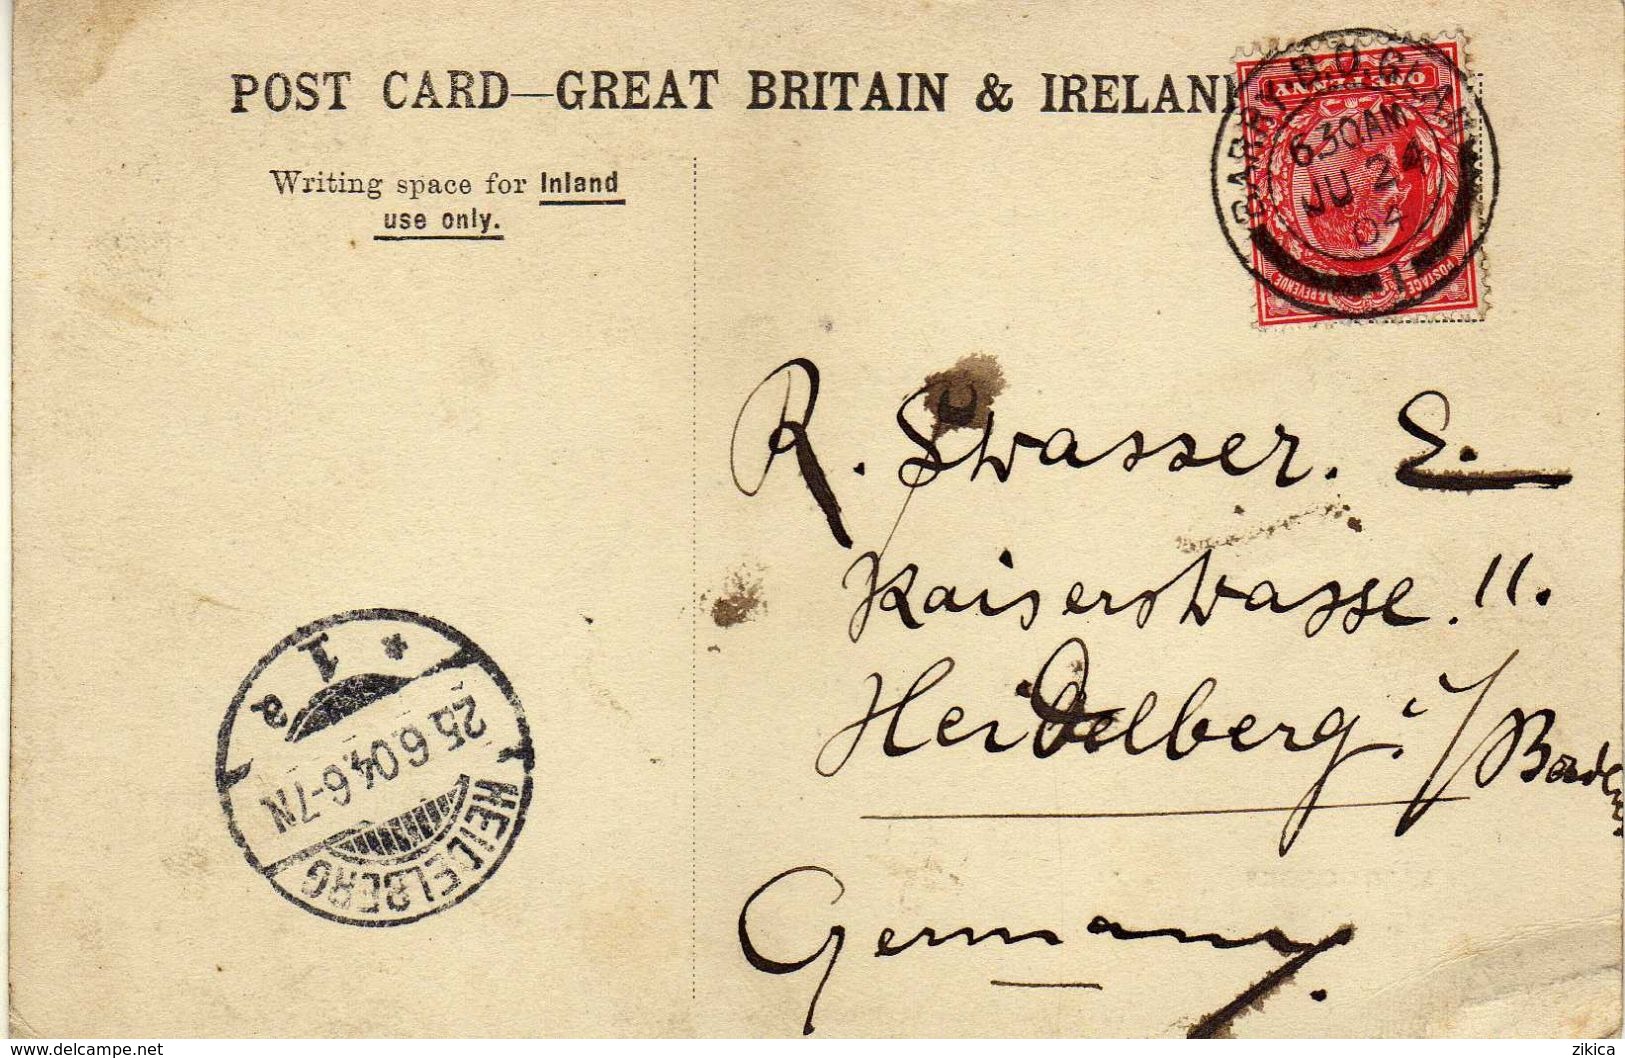 POST CARD—GREAT BRITAIN & IRELAN
Writing space for Inland
use only.
ONE PENNY
POSTAGE & REVENUE
BARRY B.O. GLAM
6.30AM
JU 24
04
1
R. Strasser. E.
Kaiserstrasse. 11.
Heidelberg. i/Baden
Germany.
HEIDELBERG
25.6.04.6-7N
* 1 a
www.delcampe.net
zikica